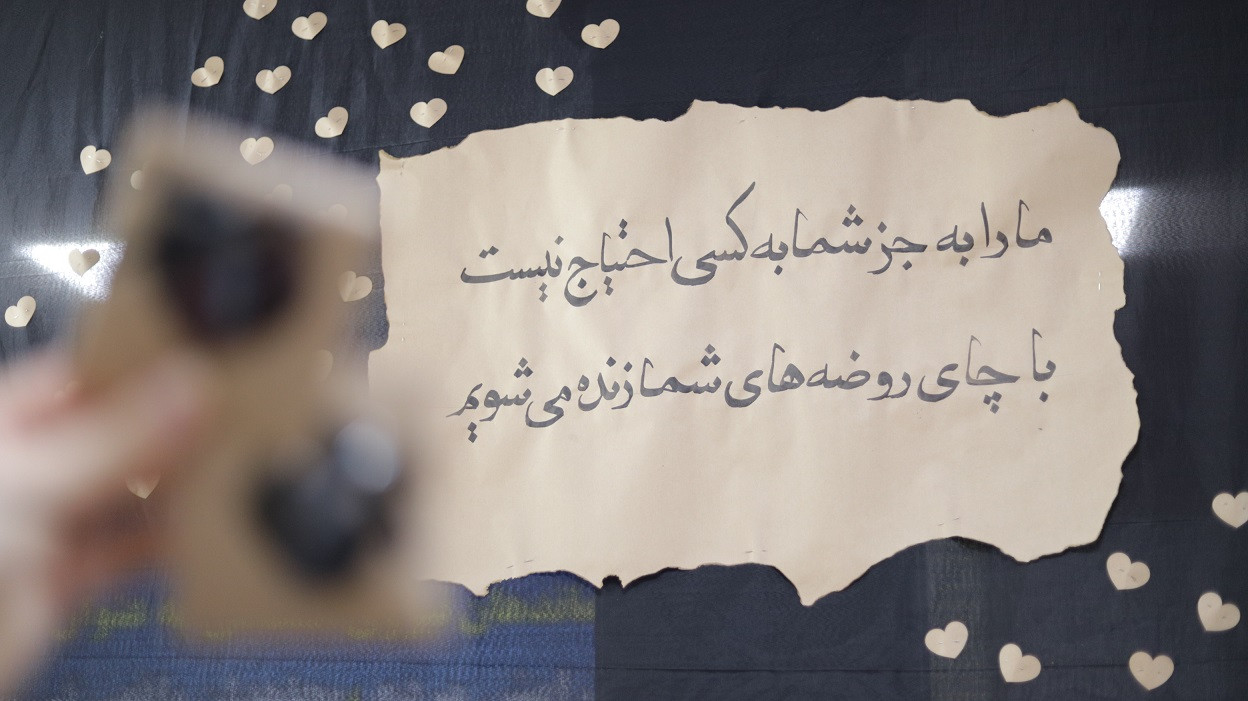 ما را به جز شما به کسی احتیاج نیست
با چای روضه‌های شما زنده می‌شویم